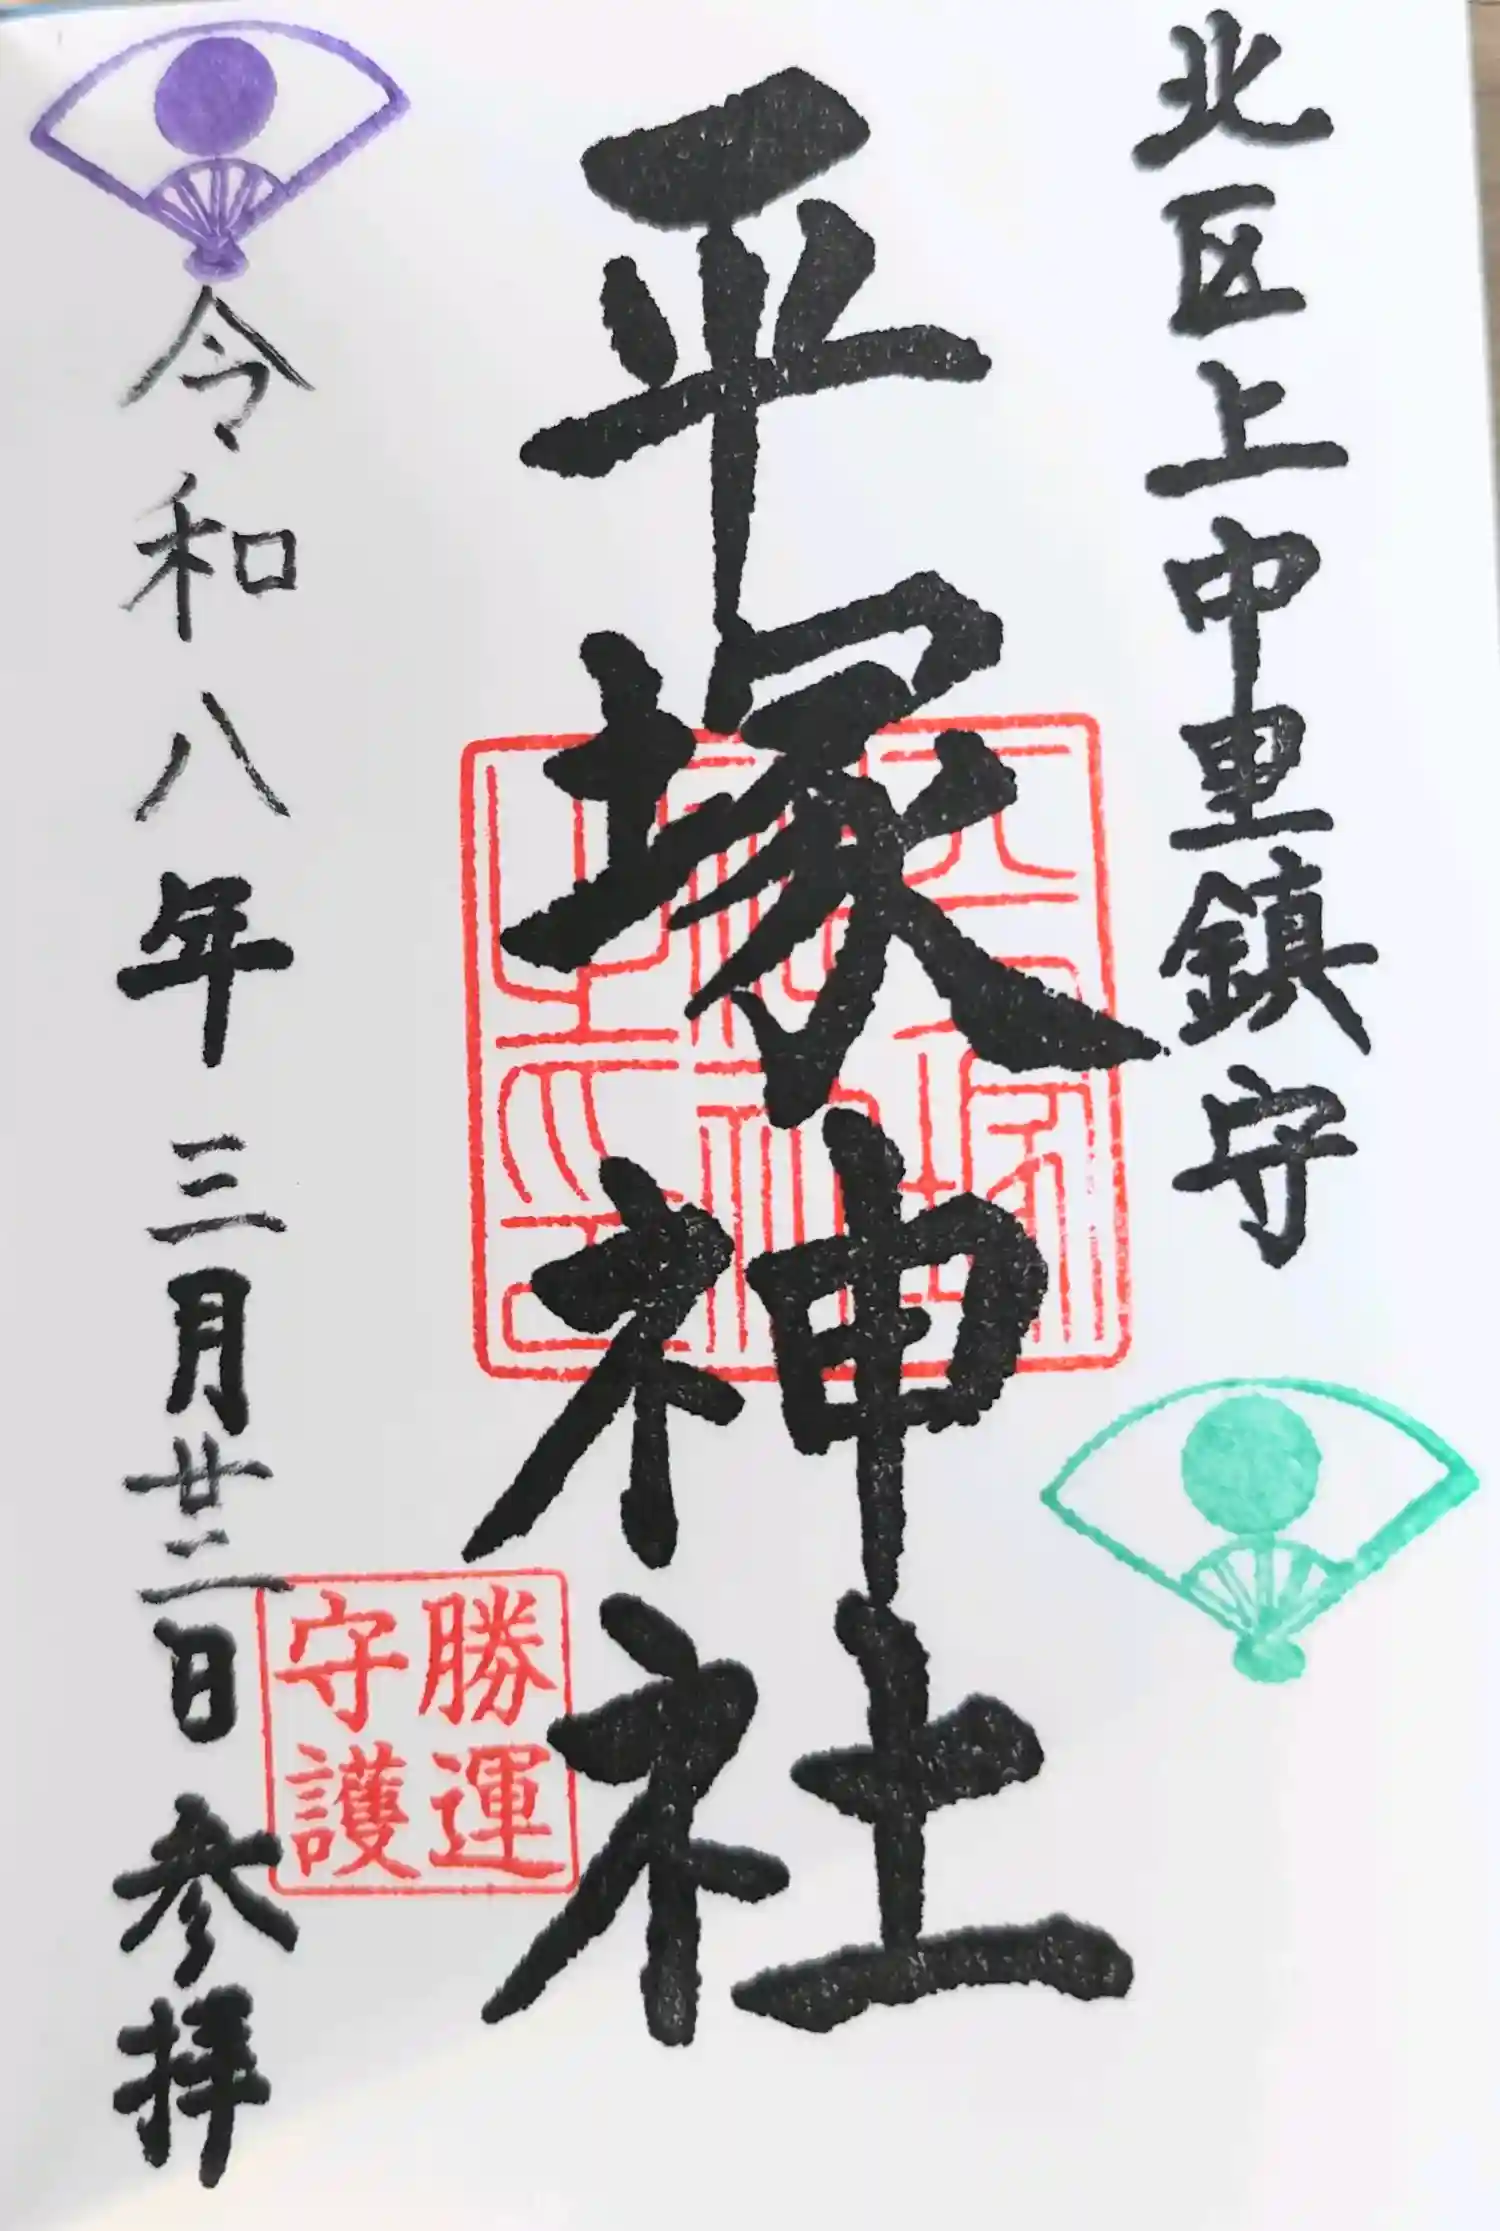 北区上中里鎮守
平塚神社
平塚
神社
之印
勝運
守護
令和八年三月廿二日参拝